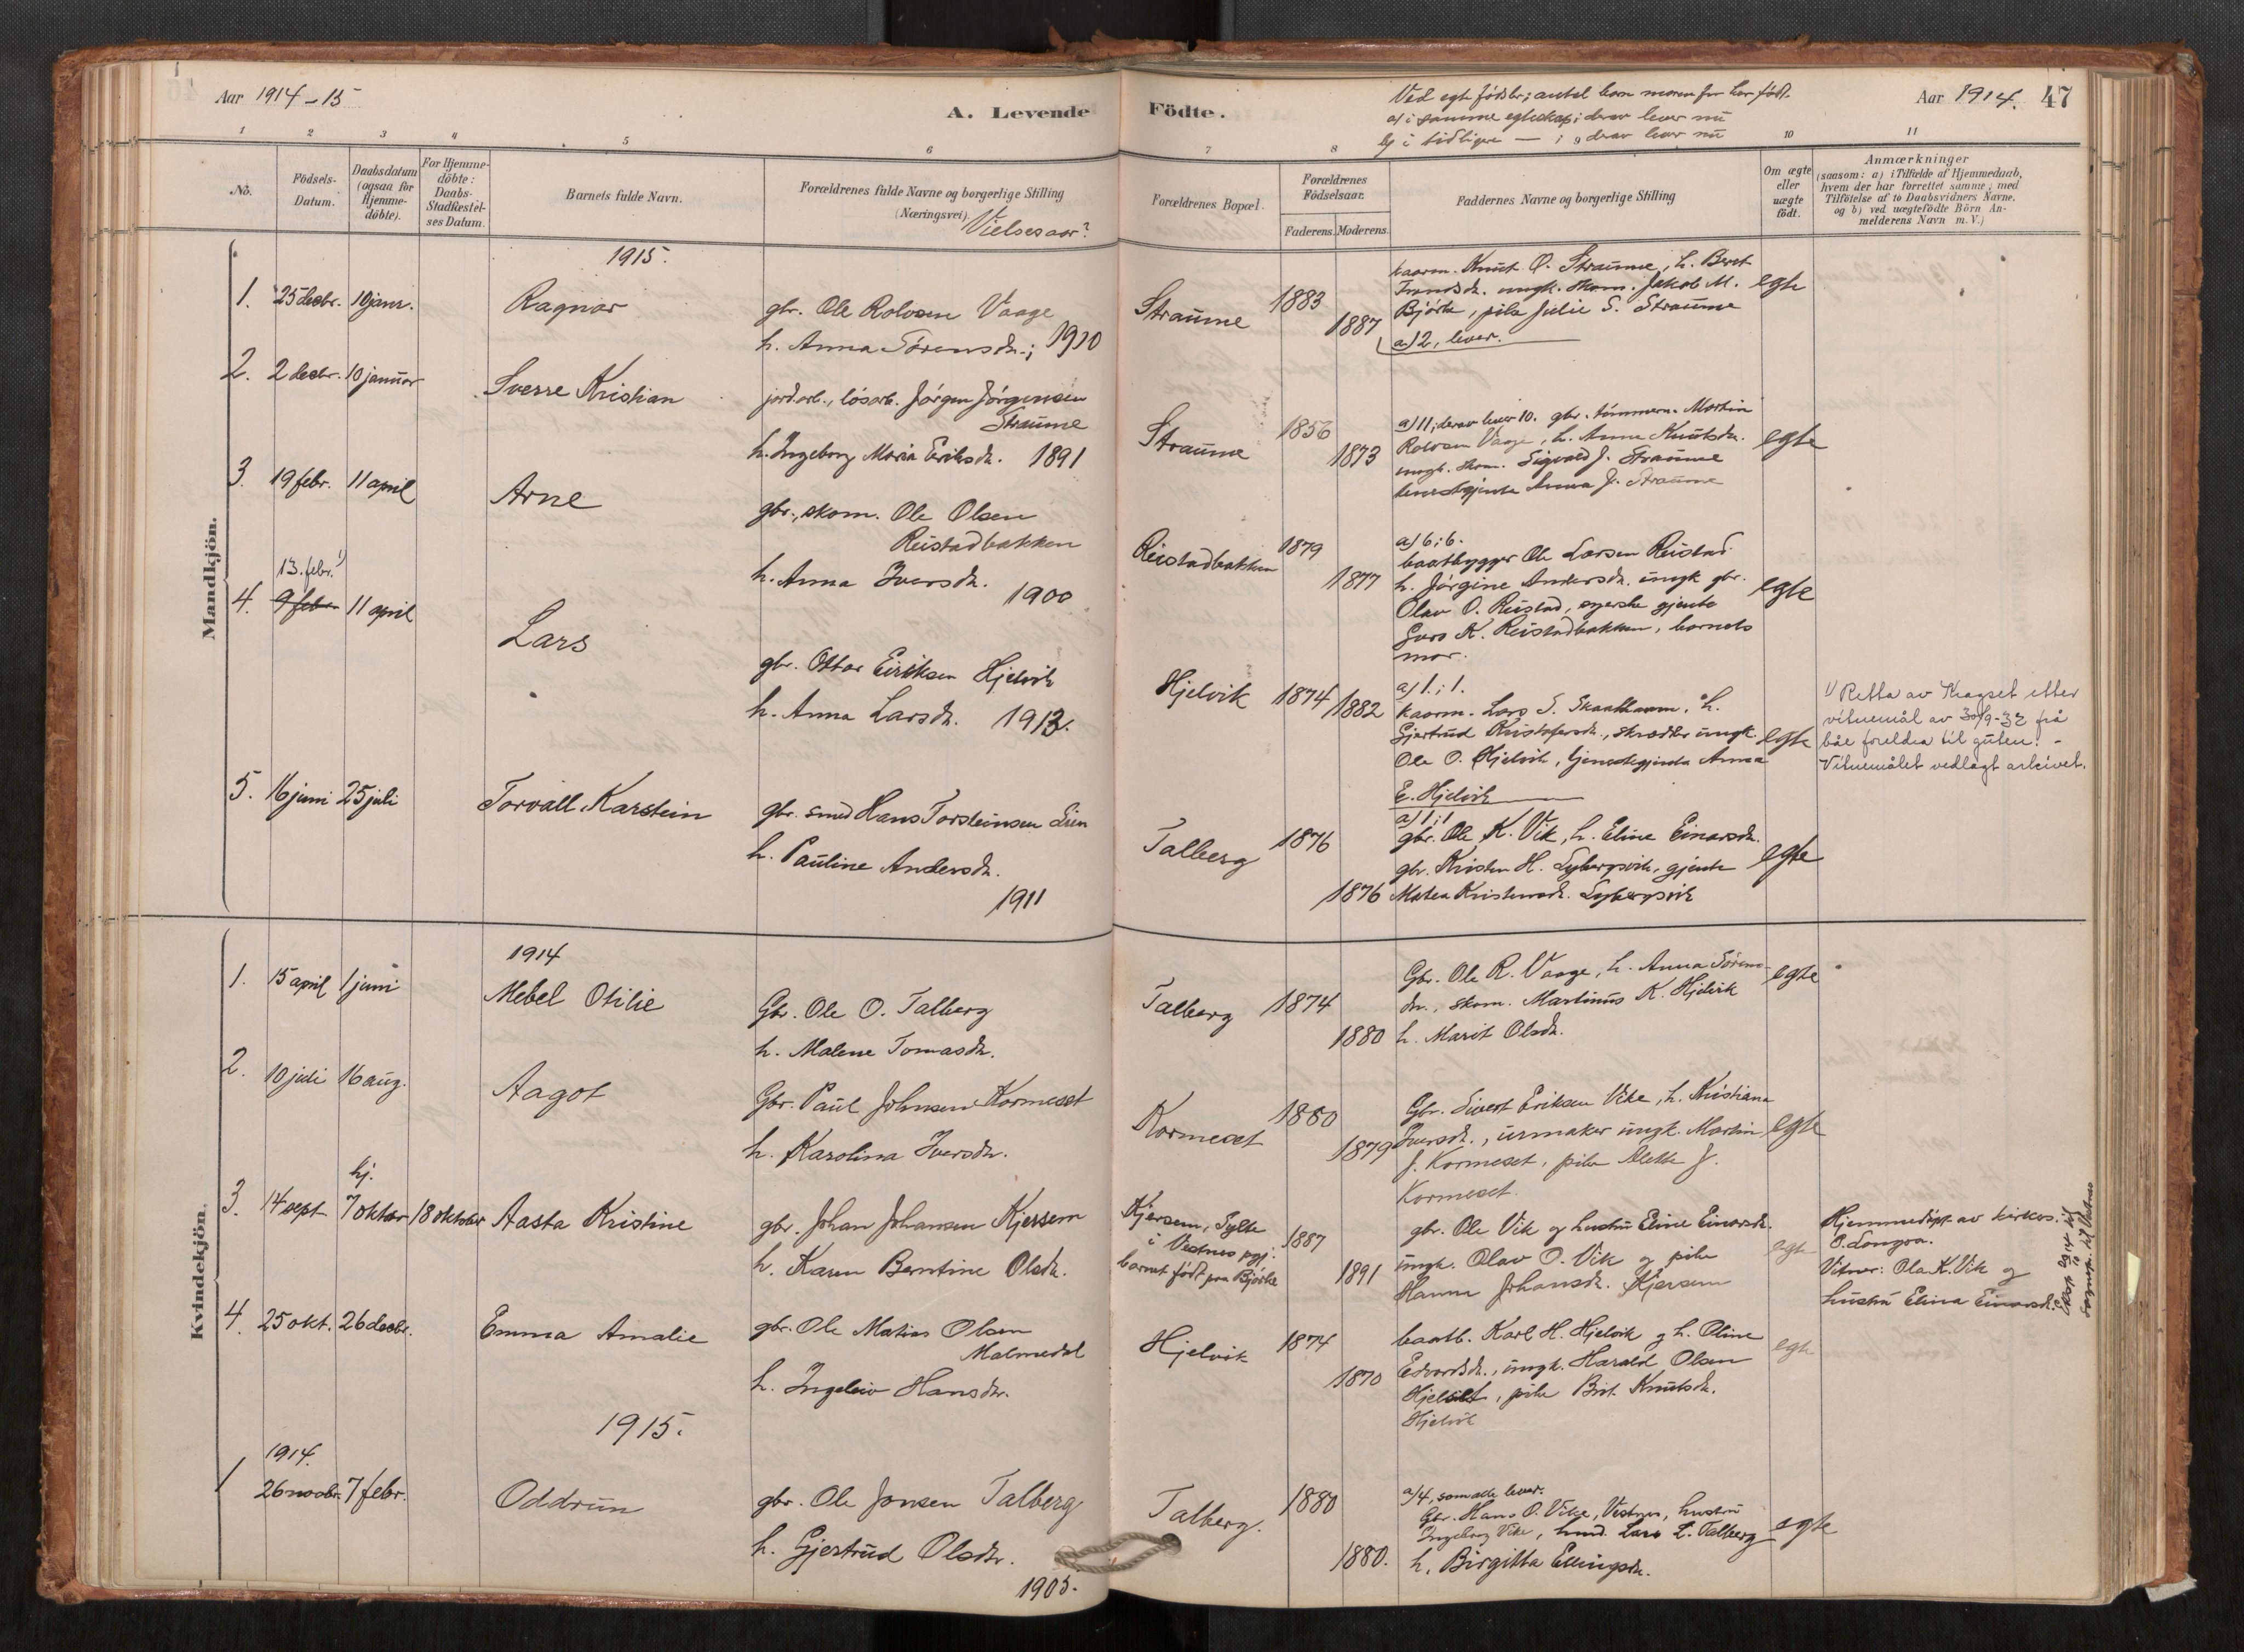 Aar 1914-15
A. Levende Födte.
Ved egte födsler; antal barn moren för har födt.
a) i samme egteskap; derav lever nu
b) i tidligere — ; derav lever nu
Aar 1914. 47
1 2 3 4 5 6 7 8 10 11
No.
Födsels-Datum.
Daabsdatum (ogsaa for Hjemmedöbte).
For Hjemmedöbte: Daabs-Stadfæstelses Datum.
Barnets fulde Navn.
Forældrenes fulde Navne og borgerlige Stilling
(Næringsvei). Vielsesaar?
Forældrenes Bopæl.
Forældrenes Födselsaar.
Faderens. Moderens.
Faddernes Navne og borgerlige Stilling
Om ægte eller uægte födt.
Anmærkninger
(saasom: a) i Tilfælde af Hjemmedaab,
hvem der har forrettet samme, med
Tilföielse af to Daabsvidners Navne,
og b) ved uægtefödte Börn Anmelderens Navn m. V.)
Mandkjön.
1915.
1. 25 decbr. 10 janr. Ragnar
gbr. Ole Rolvsen Vaage
h. Anna Sørensdr.; 1910
Straume 1883 1887
kaarm. Knut O. Straume, h. Beret
Trondsdr. ungk. skom. Jakob M.
Bjørke, pike Julie S. Straume
a) 2, lever.
egte
2. 2 decbr. 10 januar Sverre Kristian
jordarb., løsarb. Jørgen Jørgensen
Straume
h. Ingeborg Maria Eriksdr. 1891
Straume 1856 1873
a) 11; derav lever 10. gbr. tømmerm. Martin
Rolvsen Vaage, h. Anne Knutsdr.
ungk. skom. Sigvald J. Straume
tenestegjente Anna J. Straume
egte
3. 19 febr. 11 april Arne
gbr., skom. Ole Olsen
Reistadbakken
h. Anna Iversdr. 1900
Reistadbakken 1879 1877
a) 6; 6.
baatbygger Ole Larsen Reistad
h. Jørgine Andersdr. ungk gbr.
Olav O. Reistad, syerske gjente
Guro K. Reistadbakken, barnets
mor.
egte
13. febr. 1)
4. 9 febr. 11 april Lars
gbr. Ottar Eiriksen Hjelvik
h. Anna Larsdr. 1913.
Hjelvik 1874 1882
a) 1; 1.
kaarm. Lars S. Skaalhamn, h.
Gjertrud Kristofersdr., skrædder ungk.
Ole O. Hjelvik, tjenestegjenta Anna
E. Hjelvik
egte
1) Retta av Kragset etter
vitnemål av 30/9-32 frå
båe foreldra til guten. -
Vitnemålet vedlagt arkivet.
5. 16 juni 25 juli Torvall Karstein
gbr. smed Hans Torsteinsen Lien
h. Pauline Andersdr.
1911
Talberg 1876 1876
a) 1; 1
gbr. Ole K. Vik, h. Eline Einarsdr.
gbr. Kristen H. Sylbergsvik, gjente
Matea Kristensdr. Sylbergsvik
egte
Kvindekjön.
1914
1. 15 april 1 juni Mebel Otilie
Gbr. Ole O. Talberg
h. Malene Tomasdr.
Talberg 1874 1880
Gbr. Ole R. Vaage, h. Anna Sørens-
dr., skom. Martinus K. Hjelvik
h. Marit Olsdr.
egte
2. 10 juli 16 aug. Aagot
Gbr. Paul Johnsen Kormeset
h. Karolina Iversdr.
Kormeset 1880 1879
Gbr. Sivert Eriksen Vike, h. Kristiana
Iversdr., urmaker ungk. Martin
J. Kormeset, pike Mette J.
Kormeset.
egte
hj.
3. 14 sept 7 oktbr 18 oktober Aasta Kristine
gbr. Johan Johansen Kjersem
h. Karen Berntine Olsdr.
Kjersem, Sylte
i Vestnes pgj.
barnet født paa Bjørke
1887 1891
gbr. Ole Vik og hustru Eline Einarsdr.
ungk. Olav O. Vik og pike
Hanna Johansdr. Kjersem
egte
Hjemmedøpt av kirkes.
O. Longva.
Vitner: Ola K. Vik og
hustru Elina Einarsdr.
sognepr. til Vestnes
4. 25 okt. 26 decbr. Emma Amalie
gbr. Ole Matias Olsen
Malmedal
h. Ingeleiv Hansdr.
Hjelvik 1874 1870
baatb. Karl H. Hjelvik og h. Oline
Edvardsdr., ungk. Harald Olsen
Hjelvik, pike Brit Knutsdr.
Hjelvik
egte
1915.
1914.
1 26 novbr. 7 febr. Oddrun
gbr. Ole Jonsen Talberg
h. Gjertrud Olsdr.
1905.
Talberg. 1880 1880.
a) 4, som alle lever.
Gbr. Hans O. Vike, Vestnes, hustru
Ingeborg Vike, smed. Lars L. Talberg
h. Birgitta Ellingsdr.
egte